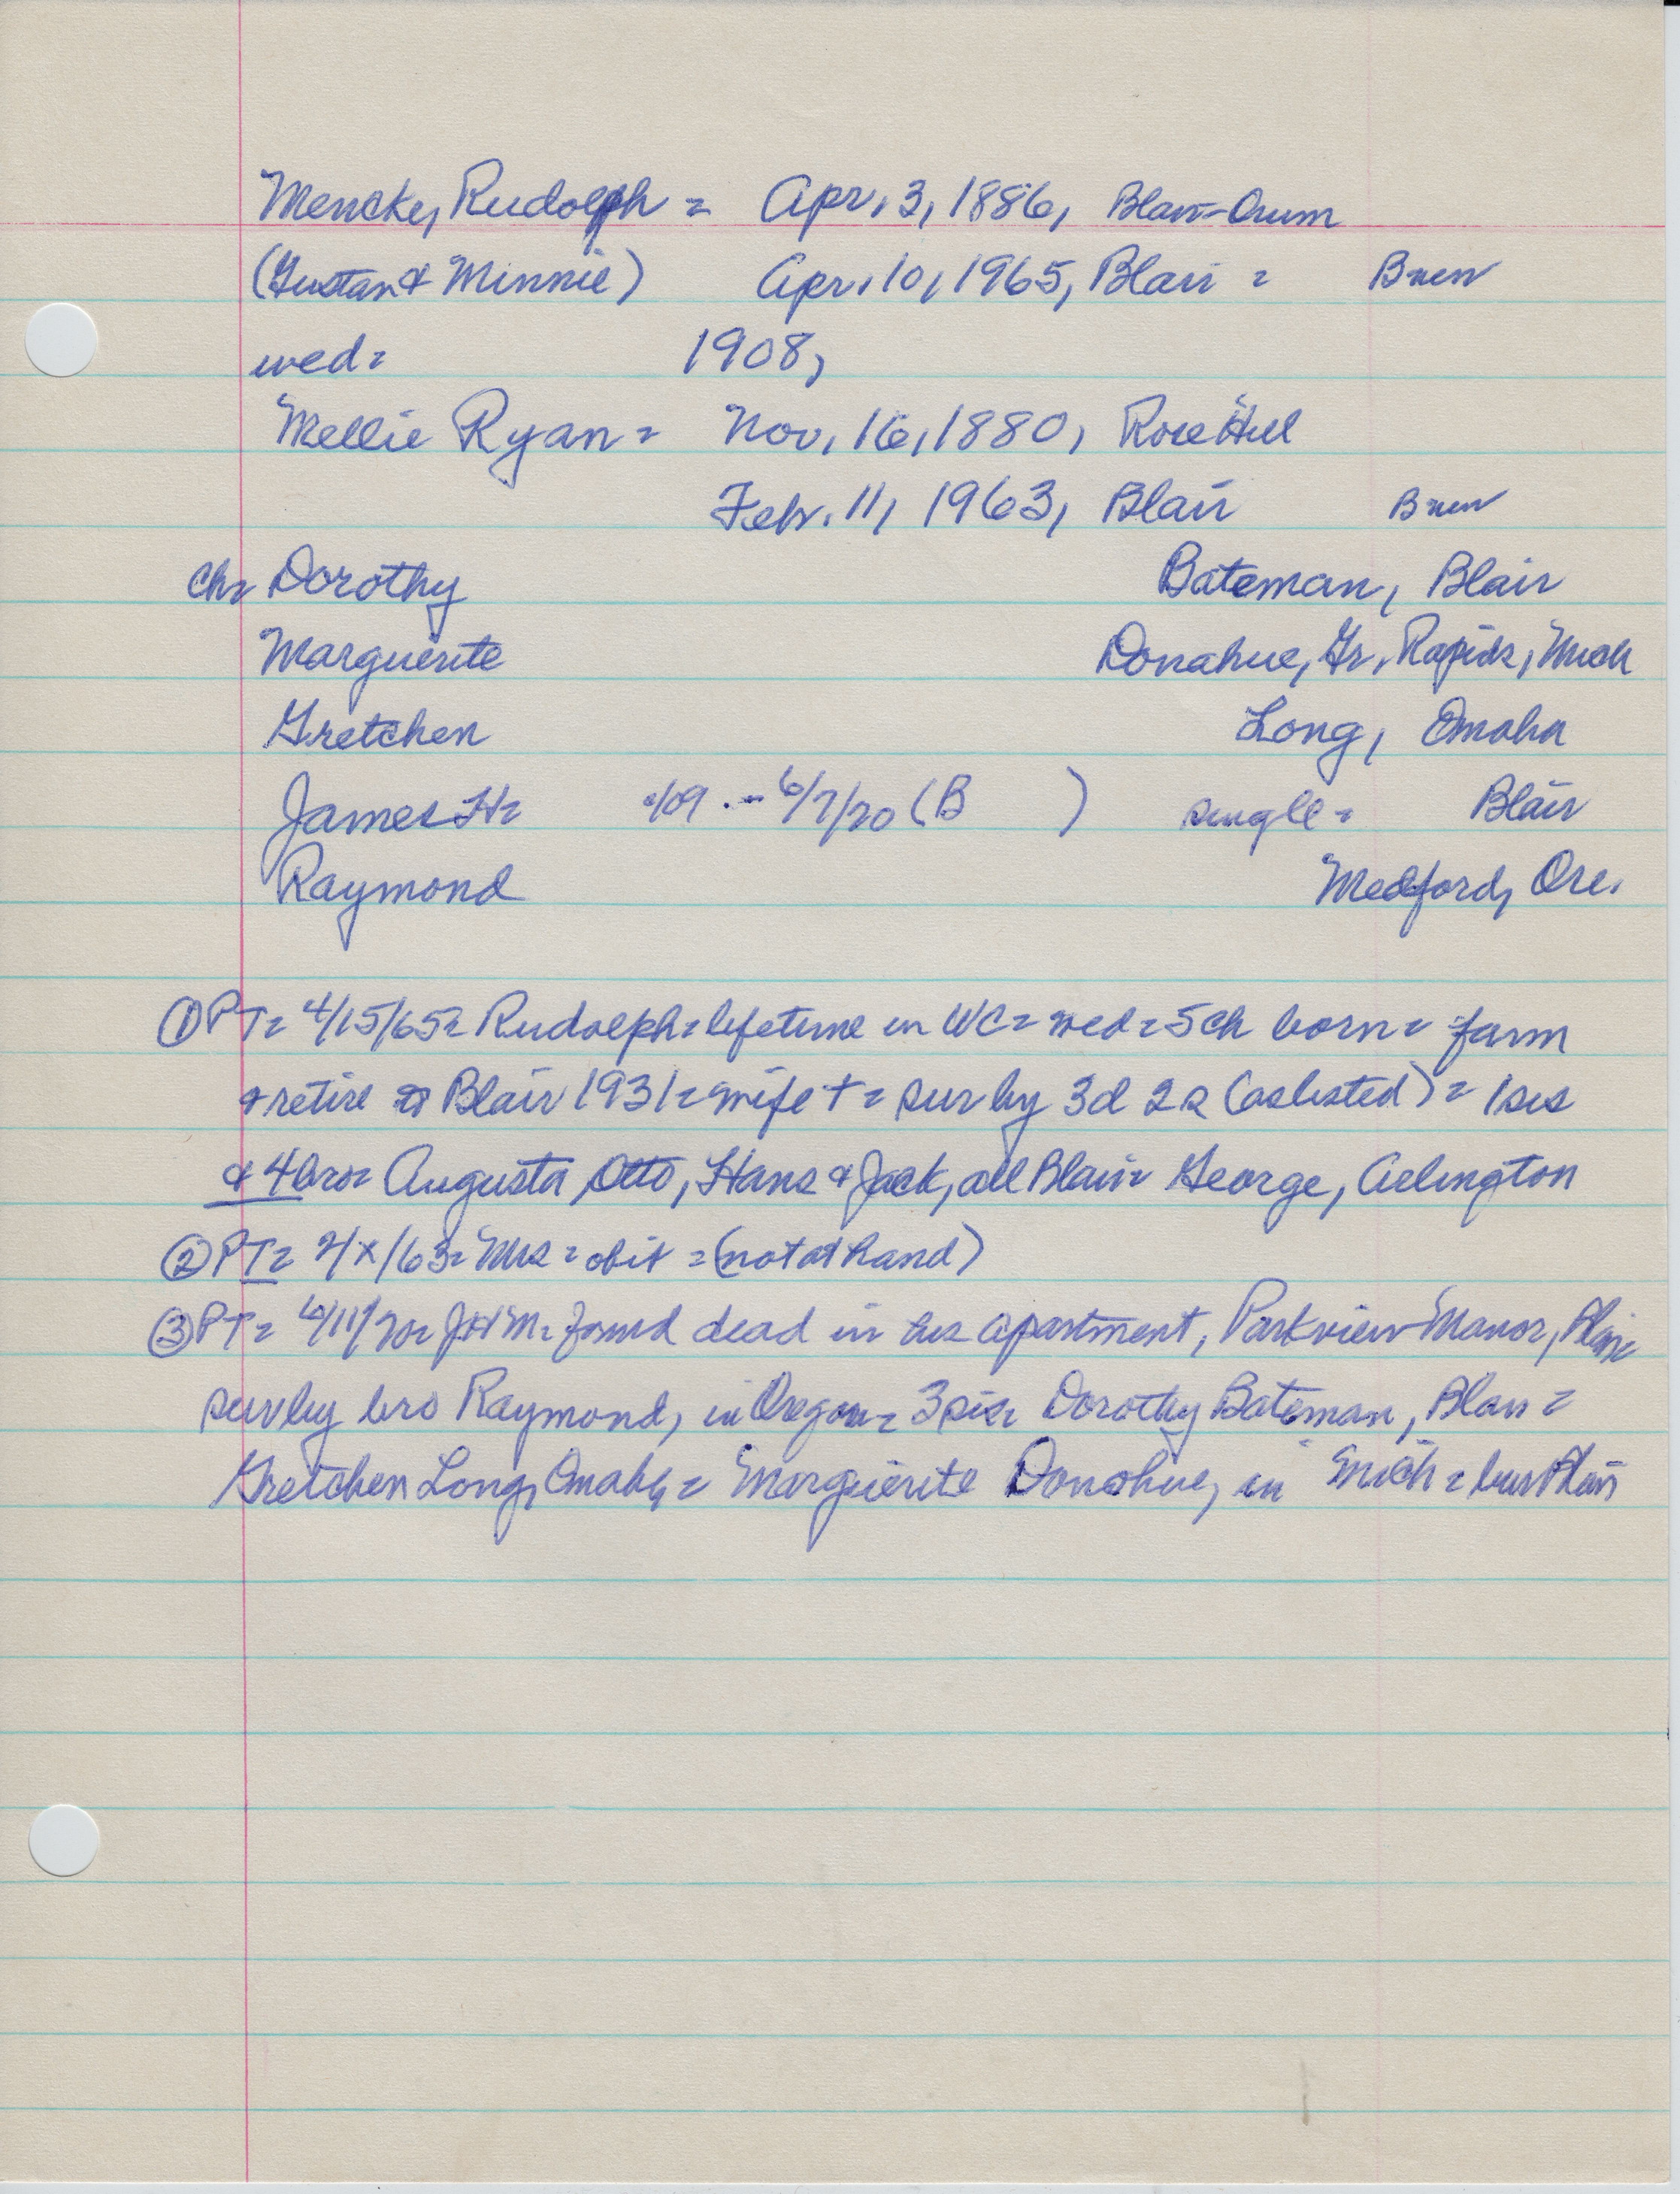 Mencke, Rudolph = Apr. 3, 1886, Blair-Orum
(Gustav & Minnie) Apr. 10, 1965, Blair = B new
wed = 1908,
Mellie Ryan = Nov. 16, 1880, Rose Hill
Febr. 11, 1963, Blair B new
ch= Dorothy Bateman, Blair
Marguerite Donahue, Gr. Rapids, Mich
Gretchen Long, Omaha
James H= /09 - 6/7/70 (B ) single = Blair
Raymond Medford, Ore.
① PT= 4/15/65= Rudolph = lifetime in WC = wed = 5 ch born = farm
& retire to Blair 1931 = wife + = sur by 3d 2s (as listed) = 1 sis
& 4 bro= Augusta, Otto, Hans & Jack, all Blair = George, Arlington
② PT= 2/x/63= Mrs = obit = (not at hand)
③ PT= 6/11/70= JHM= found dead in his apartment, Parkview Manor, Blair
sur by bro Raymond, in Oregon = 3 sis= Dorothy Bateman, Blair =
Gretchen Long, Omaha, = Marguerite Donahue, in Mich = bur Blair